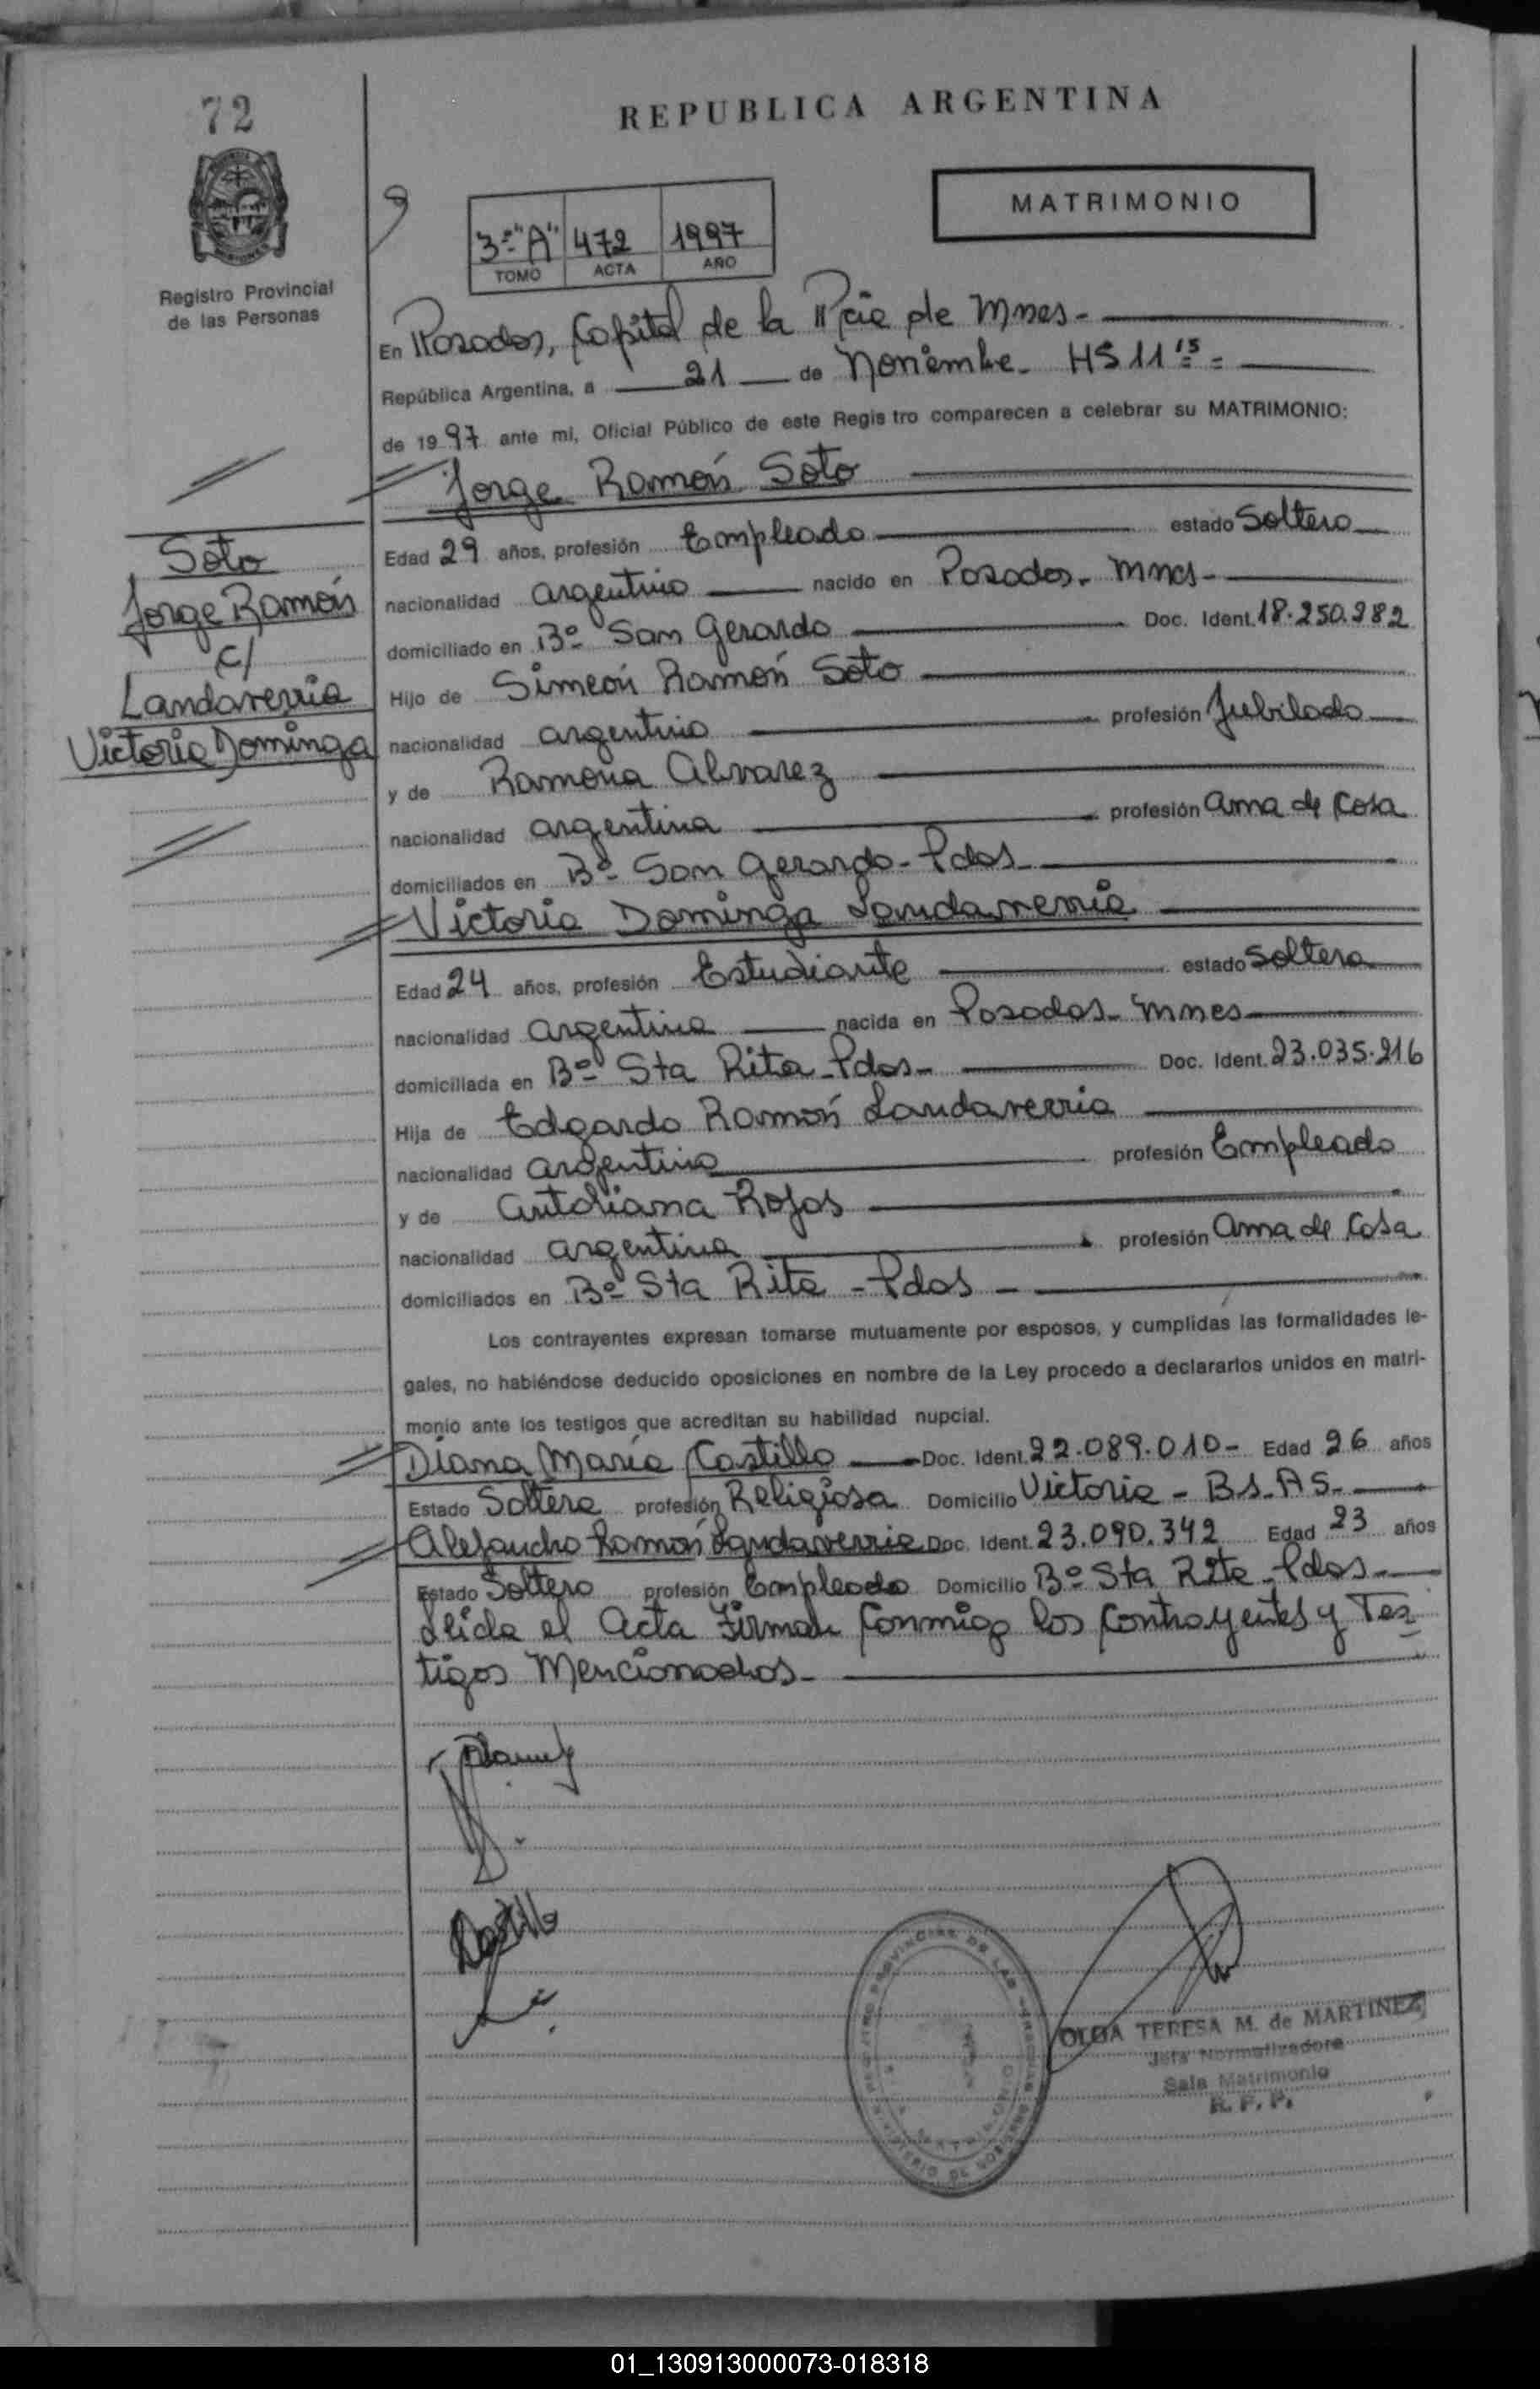 72
REPUBLICA ARGENTINA
MATRIMONIO
3º "A" 472 1997
TOMO ACTA AÑO
Registro Provincial
de las Personas
En Posadas, Capital de la Pcia de Mnes-
República Argentina, a 21 de Noviembre- HS 11 15 =
de 1997 ante mi, Oficial Público de este Registro comparecen a celebrar su MATRIMONIO:
Jorge Ramón Soto
Soto
Jorge Ramón
c/
Landaverria
Victoria Dominga
Edad 29 años, profesión Empleado estado Soltero
nacionalidad argentino nacido en Posadas- Mnes-
domiciliado en Bº San Gerardo Doc. Ident. 18.250.382
Hijo de Simeón Ramón Soto
nacionalidad argentino profesión Jubilado
y de Ramona Alvarez
nacionalidad argentina profesión ama de Casa
domiciliados en Bº San Gerardo- Pdas-
Victoria Dominga Landaverria
Edad 24 años, profesión Estudiante estado Soltera
nacionalidad argentina nacida en Posadas- Mnes-
domiciliada en Bº Sta Rita-Pdas- Doc. Ident. 23.035.216
Hija de Edgardo Ramón Landaverria
nacionalidad argentino profesión Empleado
y de antoliana Rojas
nacionalidad argentina profesión ama de Casa
domiciliados en Bº Sta Rita -Pdas -
Los contrayentes expresan tomarse mutuamente por esposos, y cumplidas las formalidades le-
gales, no habiéndose deducido oposiciones en nombre de la Ley procedo a declararlos unidos en matri-
monio ante los testigos que acreditan su habilidad nupcial.
Diana María Castillo Doc. Ident. 22.089.010- Edad 26 años
Estado Soltera profesión Religiosa Domicilio Victoria - Bs-AS-
Alejandro Ramón Landaverria Doc. Ident. 23.090.342 Edad 23 años
Estado Soltero profesión Empleado Domicilio Bº Sta Rita-Pdas-
Leida el Acta Firman Conmigo los Contrayentes y Tes
tigos Mencionados-
Castillo
OLGA TERESA M. de MARTINEZ
Jefa Normalizadora
Sala Matrimonio
R. P. P.
01_130913000073-018318